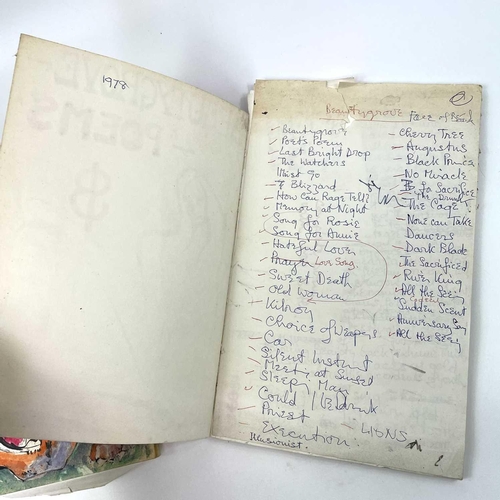 1978
Beautygrove
Beautygrove
Poet's Poem
Last Bright Drop
The Watchers
I Must Go
Blizzard
How Can Rage Tell?
Memory at Night
Song for Rosie
Song for Annie
Hateful Lover
Prayer Love Song
Sweet Death
Old Woman
Kilroy
Choice of Weapons
Car
Silent Instinct
Meet at Sunset
Sleepy Man
Could I Be Drunk
Priest
LIONS
Execution
Illusionist.
Face of
Cherry Tree
Augustus
Black Prince
No Miracle
To Sacrifice
The Drunk
The Cage
None can Take
Dancers
Dark Blade
The Sacrificed
River King
All the Seeing
Sudden Scent
Anniversary Song
All the Seeing